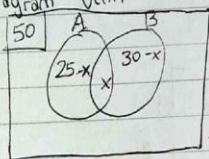 50 A B
25-x x 30-x